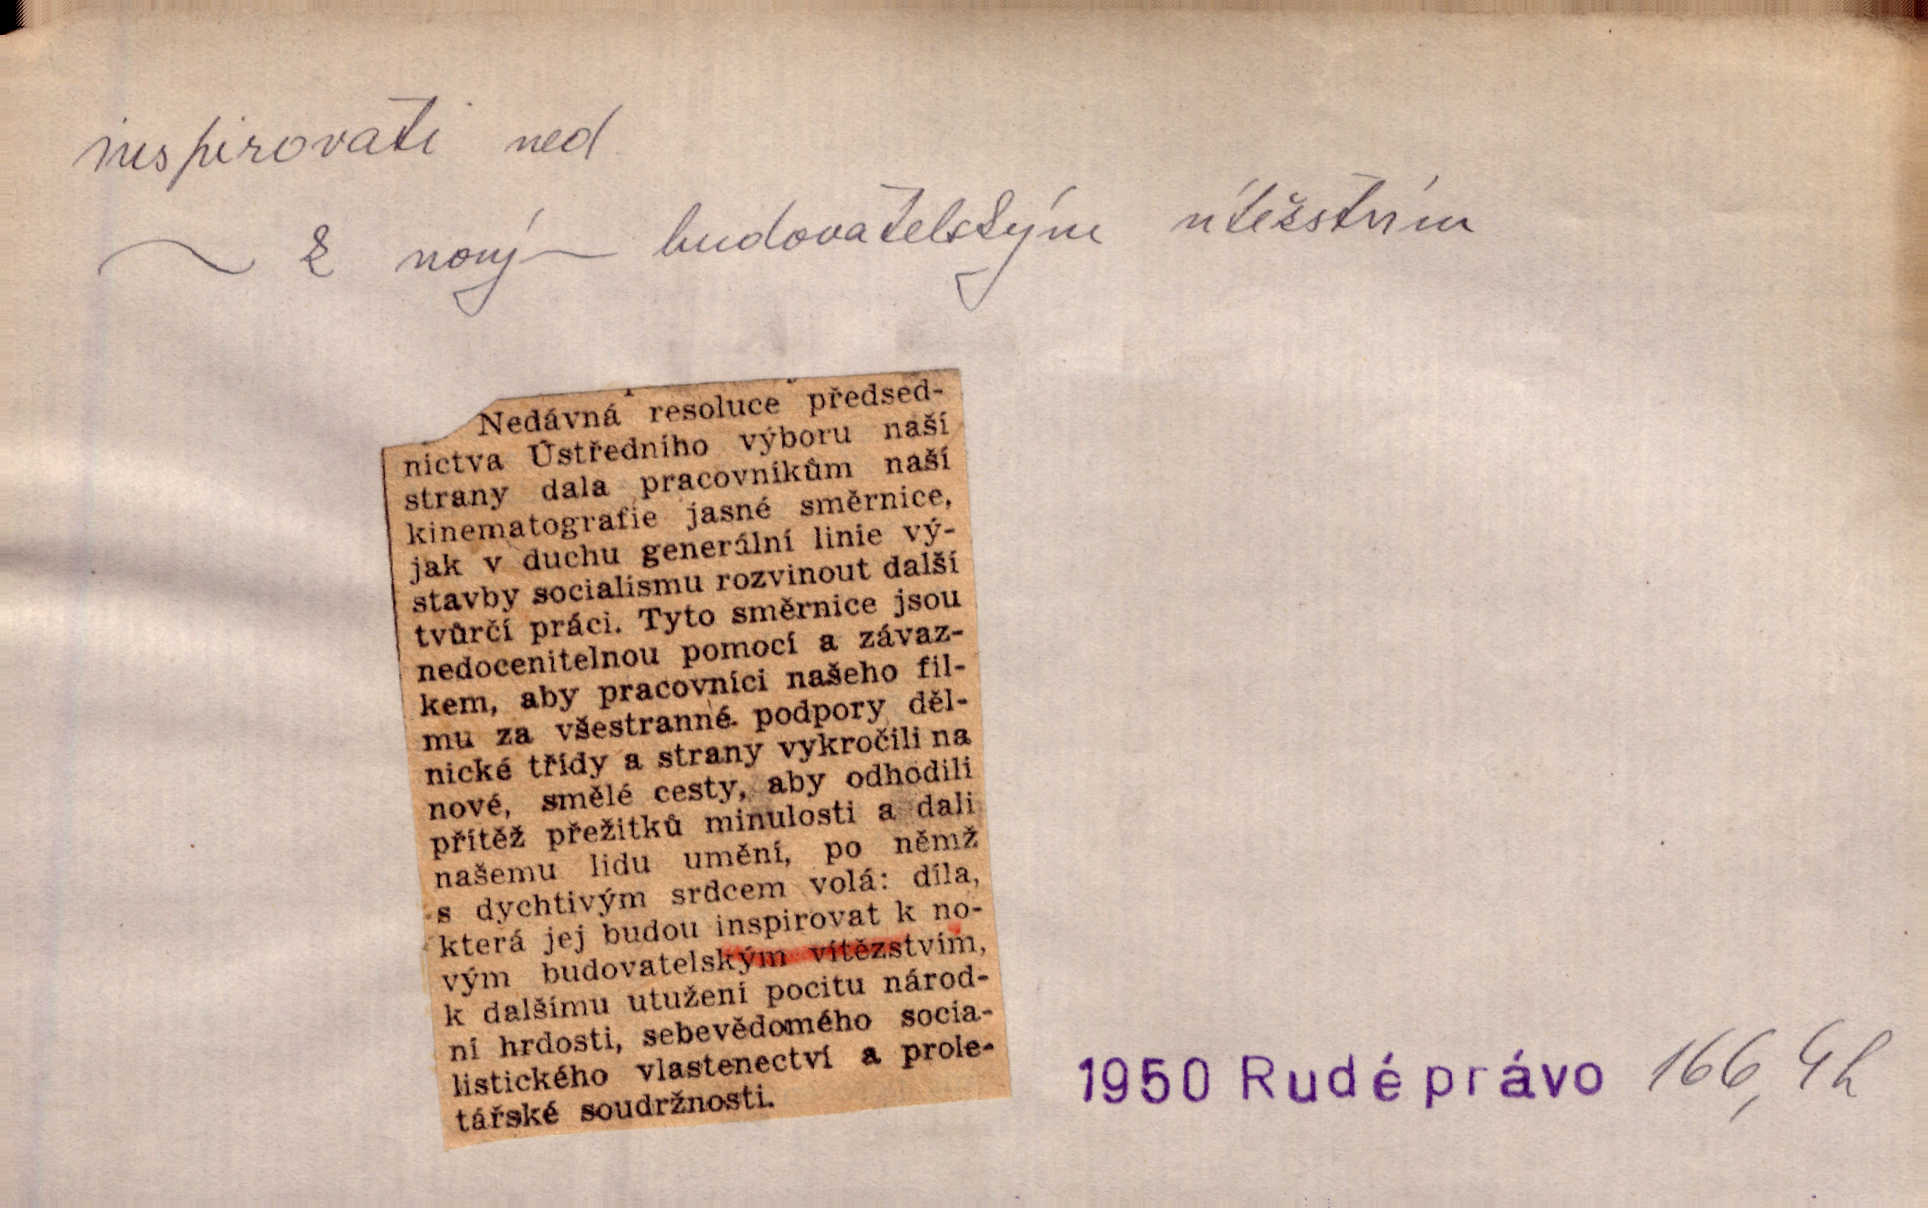 inspirovati ned
k nový budovatelským vítězstvím
Nedávná resoluce předsed-
nictva Ústředního výboru naší
strany dala pracovníkům naší
kinematografie jasné směrnice,
jak v duchu generální linie vý-
stavby socialismu rozvinout další
tvůrčí práci. Tyto směrnice jsou
nedocenitelnou pomocí a závaz-
kem, aby pracovníci našeho fil-
mu za všestranné podpory děl-
nické třídy a strany vykročili na
nové, smělé cesty, aby odhodili
přítěž přežitků minulosti a dali
našemu lidu umění, po němž
s dychtivým srdcem volá: díla,
která jej budou inspirovat k no-
vým budovatelským vítězstvím,
k dalšímu utužení pocitu národ-
ní hrdosti, sebevědomého socia-
listického vlastenectví a prole-
tářské soudržnosti.
1950 Rudé právo 166, 4h